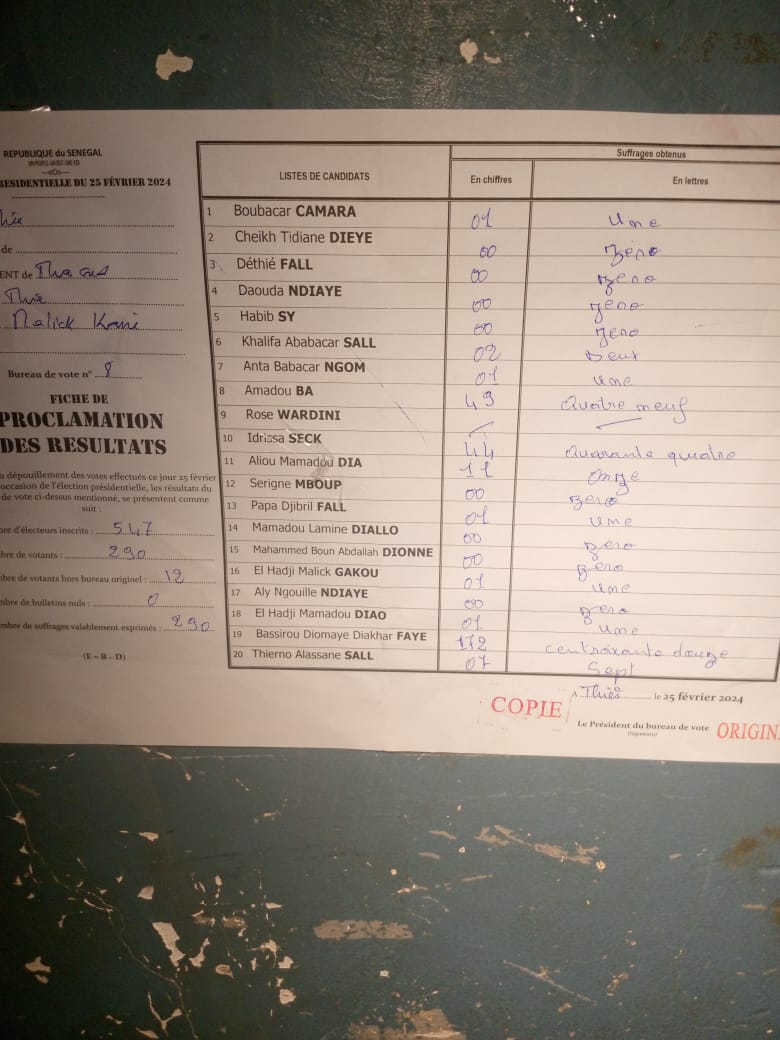 REPUBLIQUE du SENEGAL
UN PEUPLE-UN BUT-UNE FOI
RESIDENTIELLE DU 25 FÉVRIER 2024
de
ENT de
Malick
Bureau de vote n° 8
FICHE DE
PROCLAMATION
DES RESULTATS
u dépouillement des votes effectués ce jour 25 février
occasion de l'élection présidentielle, les résultats du
de vote ci-dessus mentionné, se présentent comme
suit :
re d'électeurs inscrits : 547
bre de votants : 290
mbre de votants hors bureau originel : 12
mbre de bulletins nuls : 0
mbre de suffrages valablement exprimés : 290
(E = B – D)
LISTES DE CANDIDATS
Suffrages obtenus
En chiffres En lettres
1 Boubacar CAMARA 01 une
2 Cheikh Tidiane DIEYE 00 zéro
3 Déthié FALL 00 zero
4 Daouda NDIAYE 00 zero
5 Habib SY 00 zero
6 Khalifa Ababacar SALL 02 Deux
7 Anta Babacar NGOM 01 une
8 Amadou BA 49 Quatre neuf
9 Rose WARDINI
10 Idrissa SECK 44 Quarante quatre
11 Aliou Mamadou DIA 11 onze
12 Serigne MBOUP 00 zero
13 Papa Djibril FALL 01 une
14 Mamadou Lamine DIALLO 00 zero
15 Mahammed Boun Abdallah DIONNE 00 zero
16 El Hadji Malick GAKOU 01 une
17 Aly Ngouille NDIAYE 00 zero
18 El Hadji Mamadou DIAO 01 une
19 Bassirou Diomaye Diakhar FAYE 172 douze
20 Thierno Alassane SALL 07 Sept
A Thiès le 25 février 2024
COPIE
Le Président du bureau de vote
(Signature)
ORIGIN